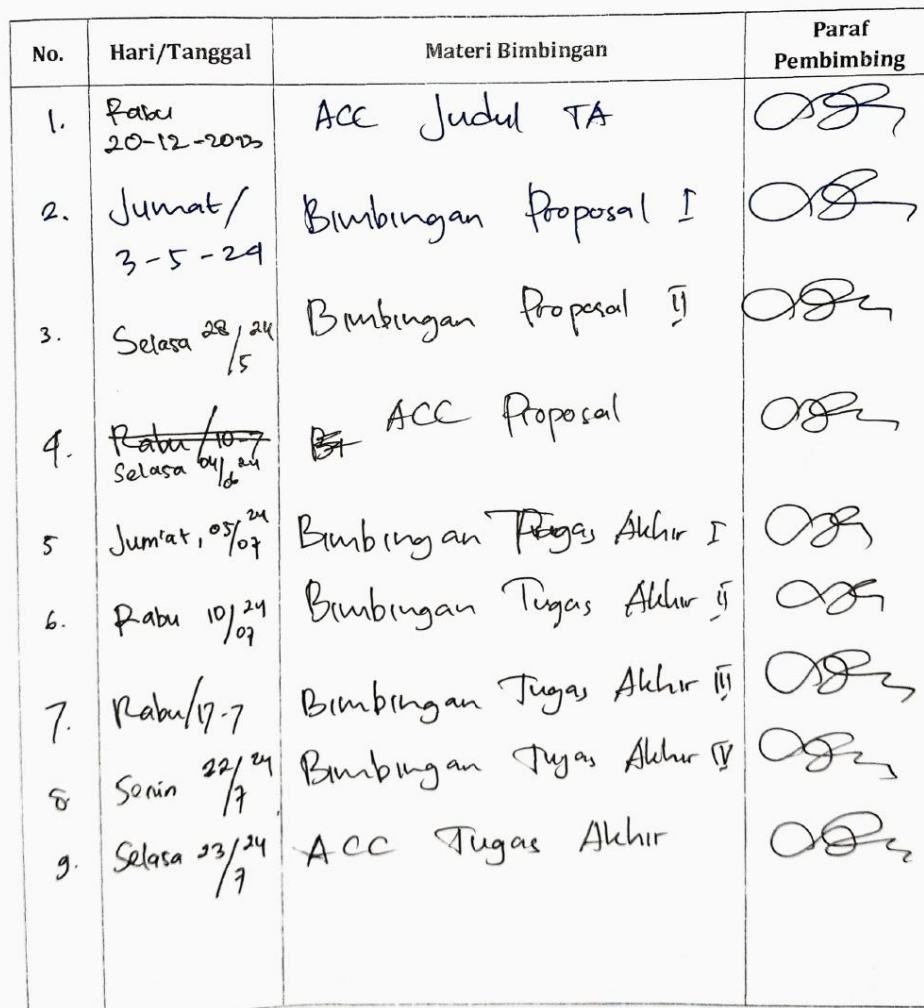 No. Hari/Tanggal Materi Bimbingan Paraf
Pembimbing
1. Rabu ACC Judul TA
20-12-2023
2. Jumat/ Bimbingan Proposal I
3-5-24
3. Selasa 28/5 24 Bimbingan Proposal II
4. Rabu/10-7 ACC Proposal
Selasa 04/06 24
5 Jum'at, 05/07 24 Bimbingan Tugas Akhir I
6. Rabu 10/07 24 Bimbingan Tugas Akhir II
7. Rabu/17-7 Bimbingan Tugas Akhir III
8 Senin 22/7 24 Bimbingan Tugas Akhir IV
9. Selasa 23/7 24 ACC Tugas Akhir